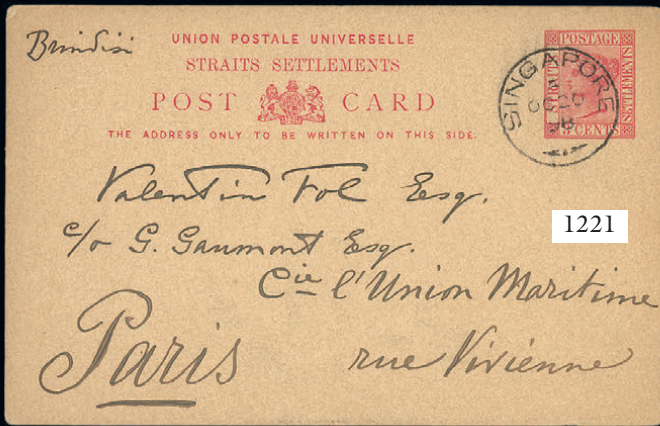 Brindisi
UNION POSTALE UNIVERSELLE
STRAITS SETTLEMENTS
POST CARD
THE ADDRESS ONLY TO BE WRITTEN ON THIS SIDE.
POSTAGE
STRAITS
SETTLEMENTS
3 CENTS
SINGAPORE
OC 20
98
Valentin Fol Esq.
c/o G. Gaumont Esq.
Cie l'Union Maritime
rue Vivienne
Paris
1221